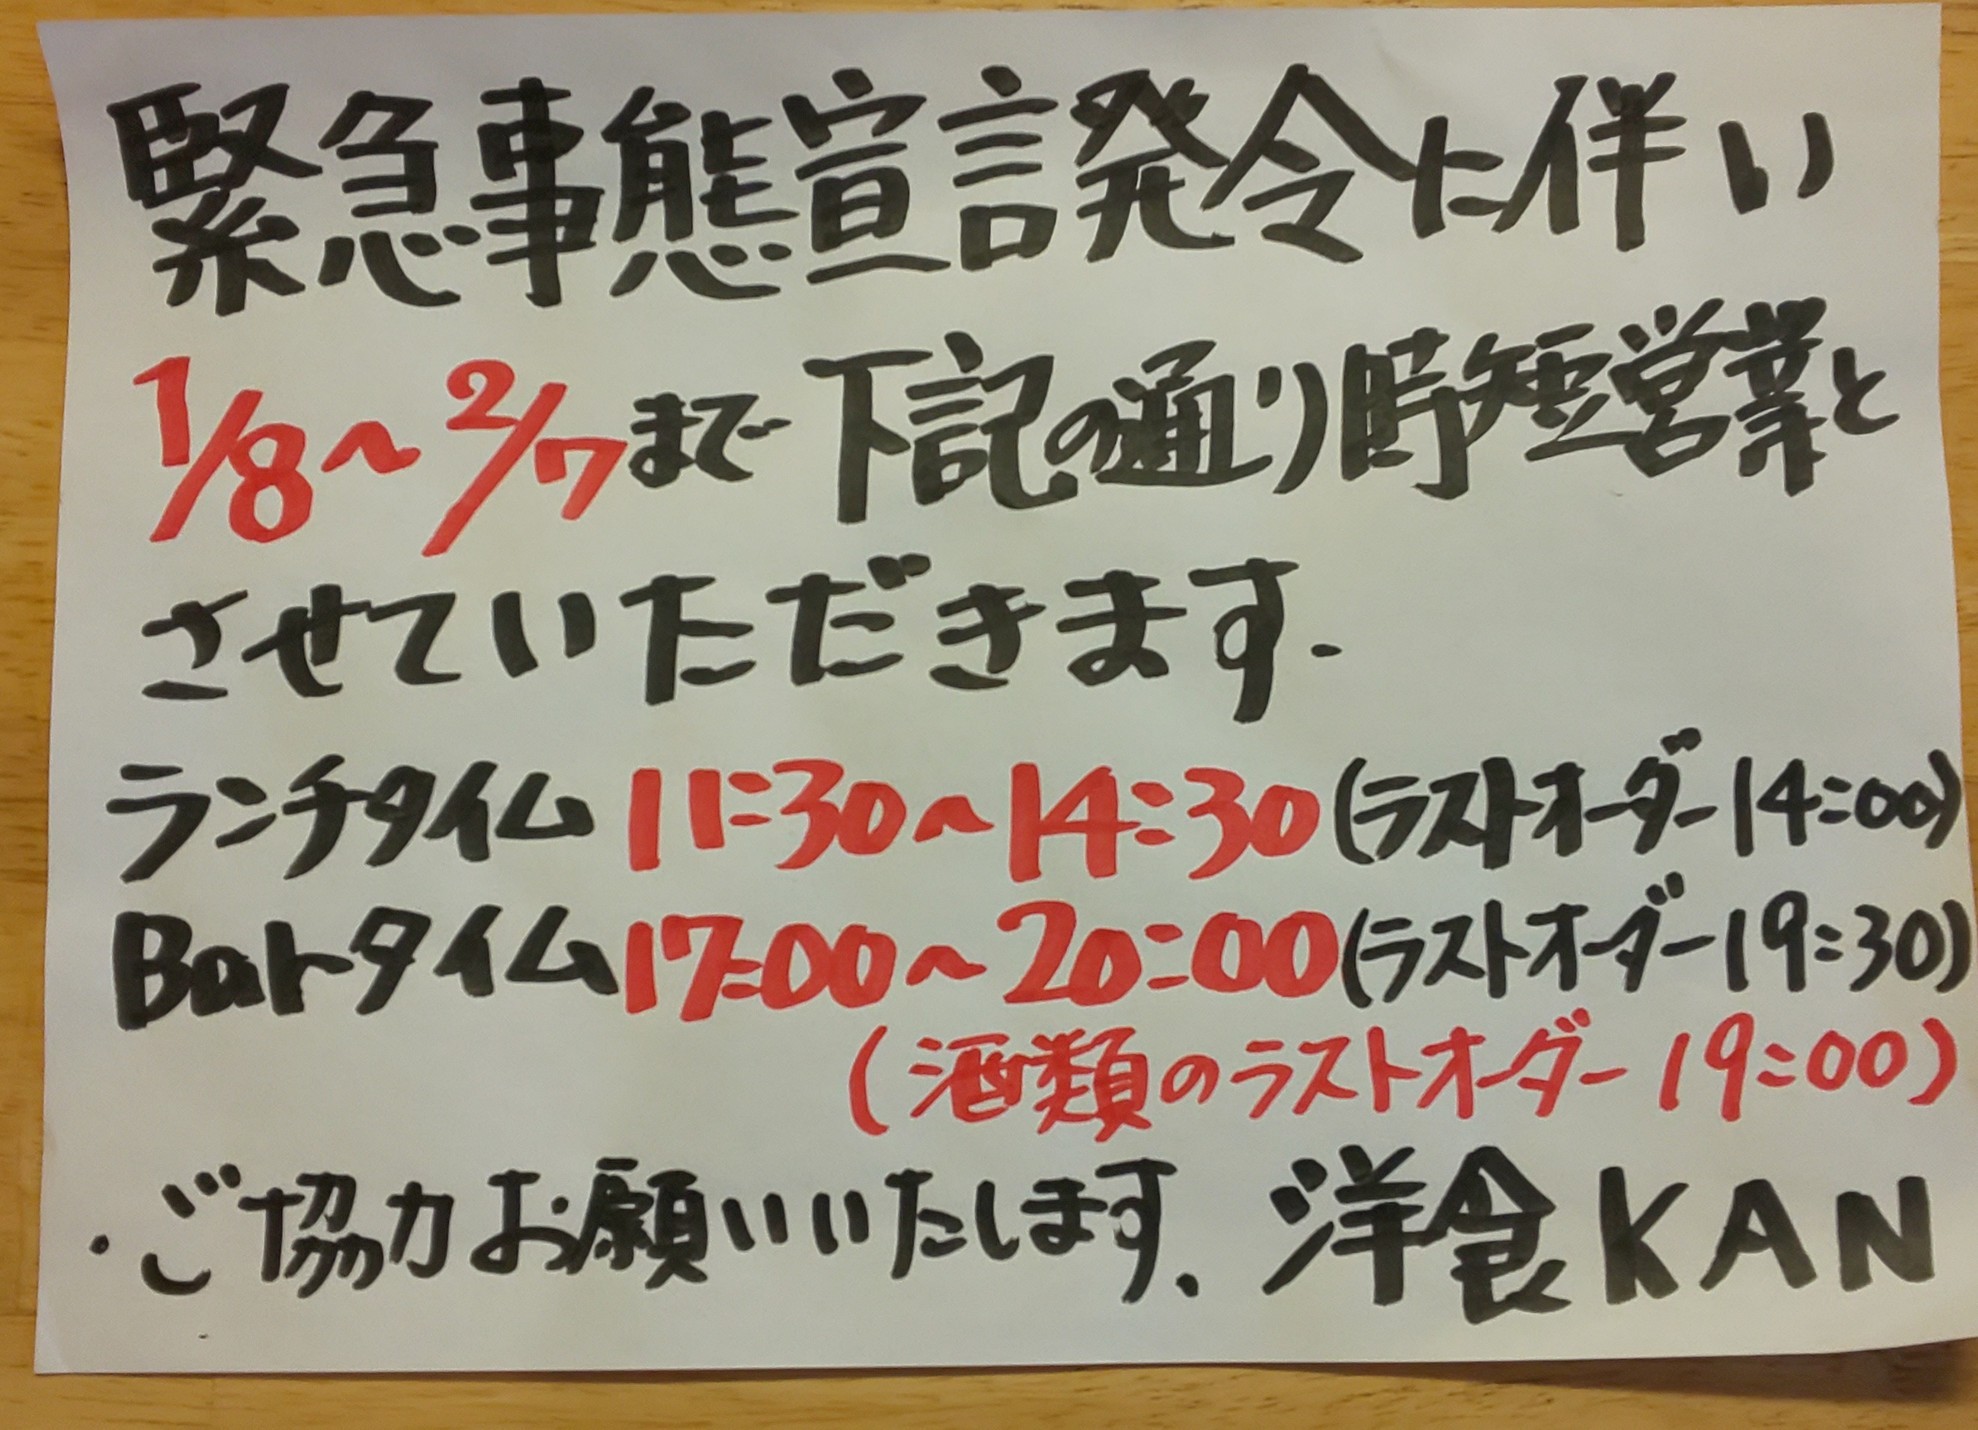 緊急事態宣言発令に伴い
1/8～2/7まで下記の通り時短営業と
させていただきます.
ランチタイム 11:30～14:30(ラストオーダー14:00)
Barタイム17:00～20:00(ラストオーダー19:30)
(酒類のラストオーダー19:00)
・ご協力お願いいたします、洋食KAN